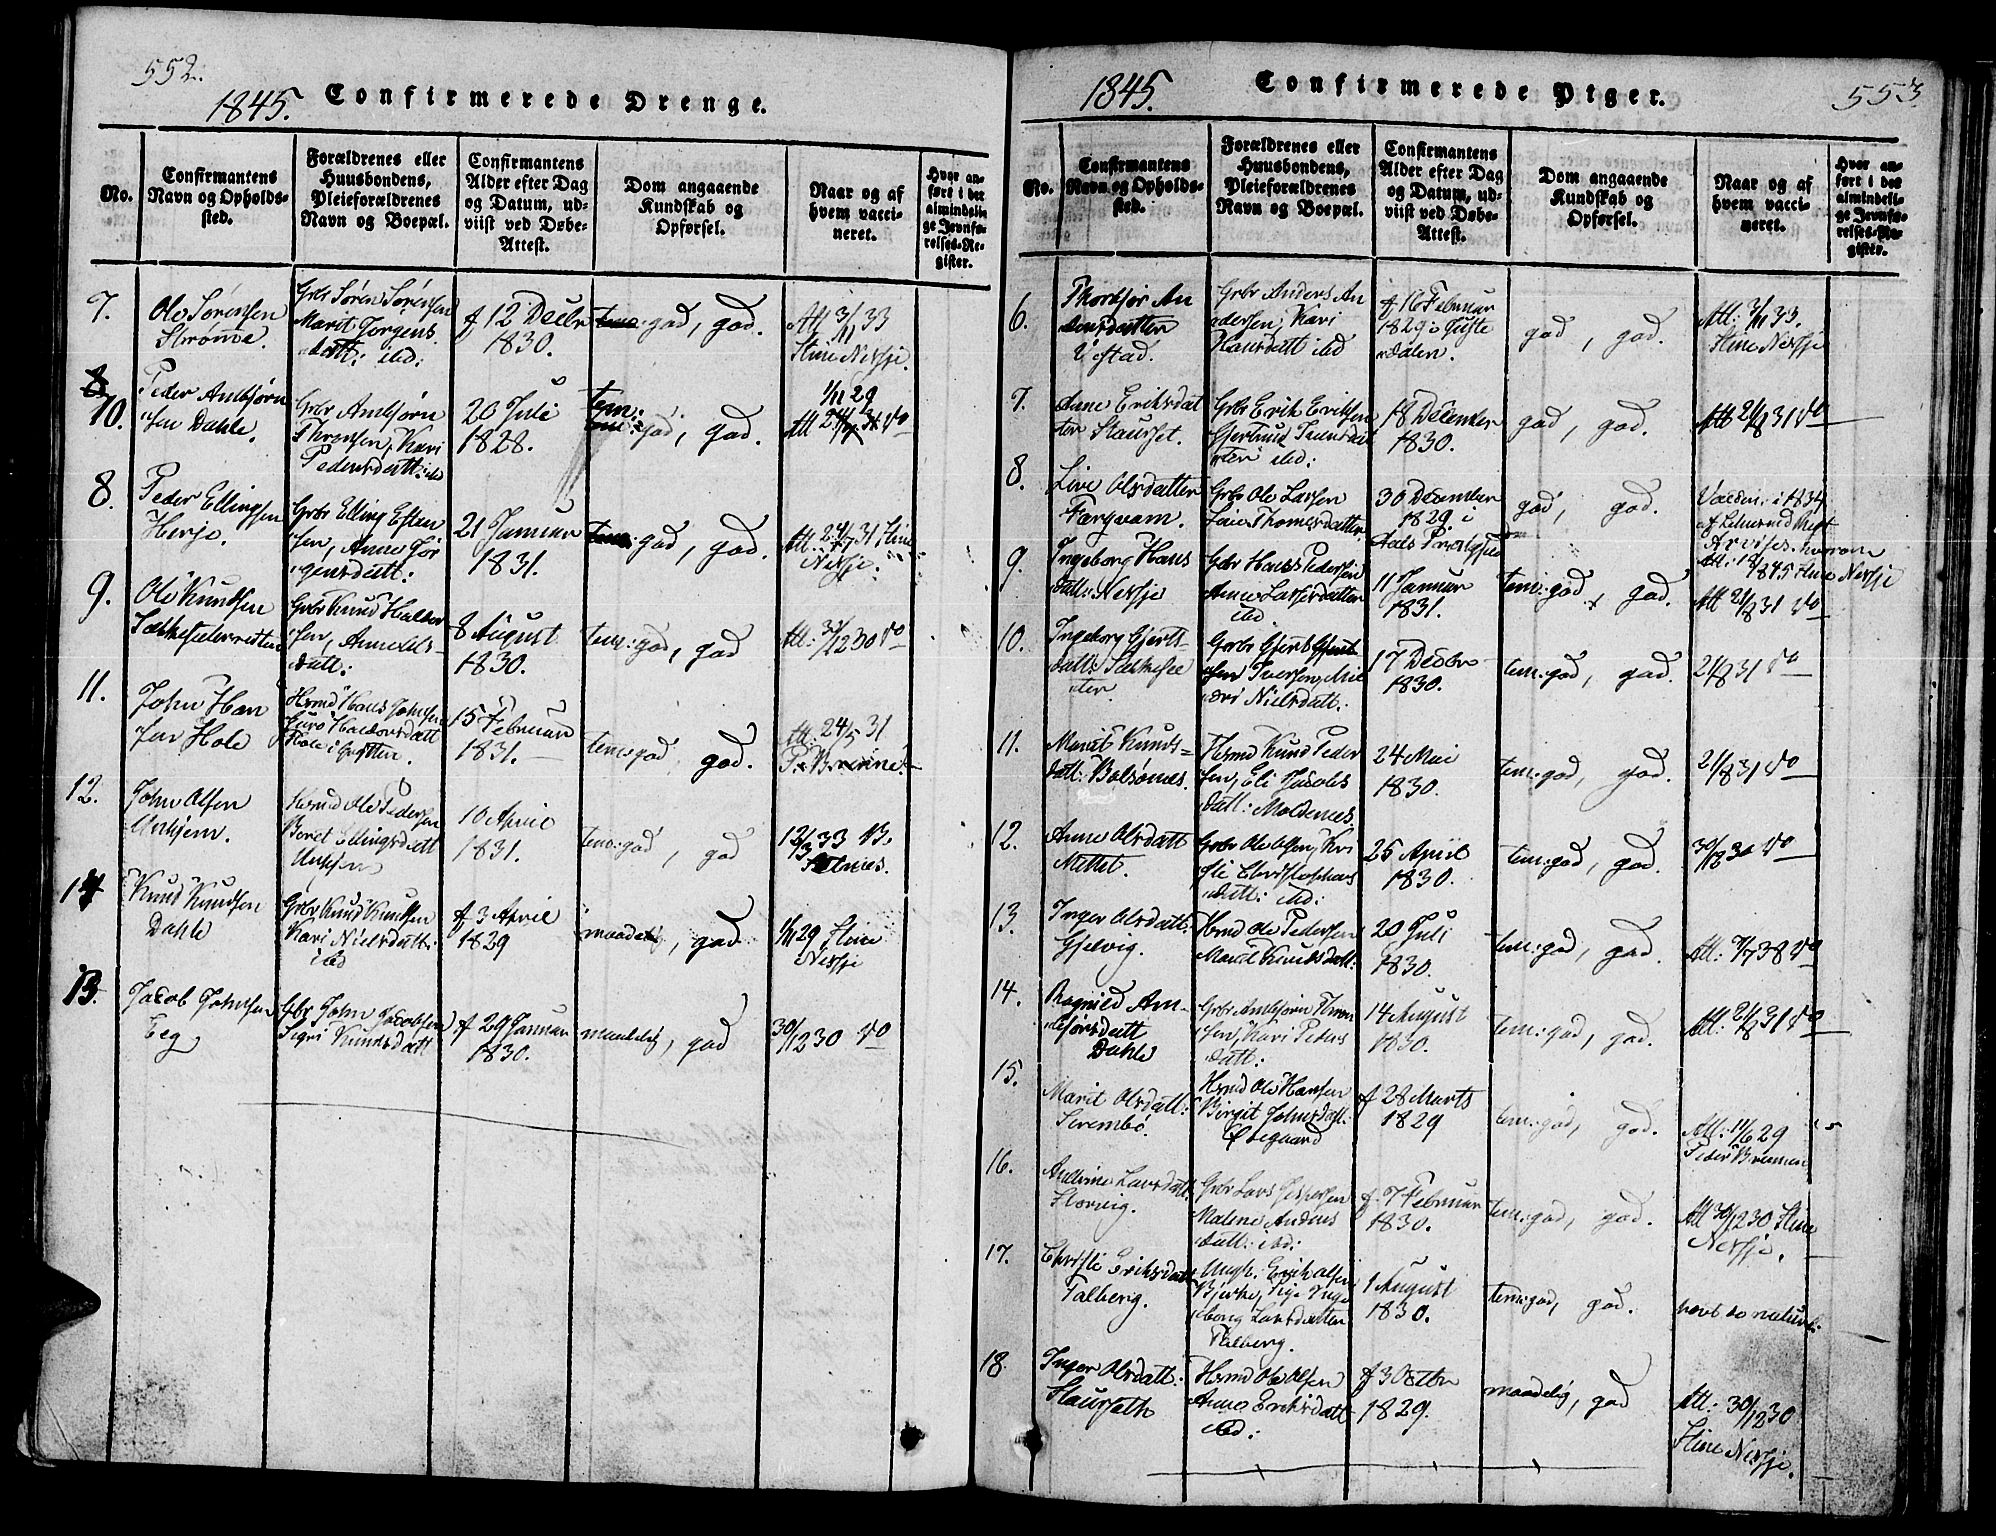 552.
1845. Confirmerede Drenge.
No.
Confirmantens
Navn og Opholds-
sted.
Forældrenes eller
Huusbondens,
Pleieforældrenes
Navn og Boepæl.
Confirmantens
Alder efter Dag
og Datum, ud-
viist ved Døbe-
Attest.
Dom angaaende
Kundskab og
Opførsel.
Naar og af
hvem vacci-
neret.
Hvor an-
ført i det
almindeli-
ge Jevnfø-
relses-Re-
gister.
7.
Ole Sørensen
Strømme.
Grbr Søren Sørensen
Marit Jørgens
datt: ibd:
f 12 Decbr
1830.
god, god.
Att 3/11 33
Stine Nersje.
10.
Peder Ambjørn
sen Dahle.
Grbr Ambjørn
Kari
Pedersdatt: ibd
20 Juli
1828.
tem:
god, god.
1/11 29
Att
8.
Peder Ellingsen
Herje.
Grbr Elling Esten
sen, Anne Jør
gensdatt:
21 Januar
1831.
god, god.
Att: 24/7 31 Stine
Nersje.
9.
Ole Knudsen
Grbr Knud Haldor
sen, Anne Ols-
datt:
8 August
1830.
tem: god, god
Att: 30 do
11.
John Han
sen Hole
Hmd Hans Johnsen
Guro Haldorsdatt
Hole i Grytten.
15 Februar
1831.
tem: god god.
Att: 24/5 31
12.
John Olsen
Hmd Ole Pedersen
Beret Ellingsdatt
10 April
1831.
tem: god, god
12/3 33
14
Knud Knudsen
Dahle
Grbr Knud Knudsen
Kari Nielsdatt:
ibd
f 3 April
1829
maadelig, god
1/11 29 Stine
Nersje
13.
Jacob Johnsen
Eeg
Grbr John Jacobsen
Sigri Knudsdatt
f 29 Januar
1830.
maadelig, god
30/12 30 do
1845. Confirmerede Piger. 553
No.
Confirmantens
Navn og Opholds-
sted.
Forældrenes eller
Huusbondens,
Pleieforældrenes
Navn og Boepæl.
Confirmantens
Alder efter Dag
og Datum, ud-
viist ved Døbe-
Attest.
Dom angaaende
Kundskab og
Opførsel.
Naar og af
hvem vacci-
neret.
Hvor an-
ført i det
almindeli-
ge Jevnfø-
relses-Re-
gister.
6.
An
dersdatter
Grbr Anders An
dersen, Kari
Hansdatt ibd
f 16 Februar
1829 i
dalen.
god, god.
Att: 3/11 33.
Stine Nersje
7.
Anne Eriksdat
ter Staurset.
Grbr Erik Eriksen
Gjertrud Iversdat
ter ibd:
18 December
1830.
god, god.
Att 21/8 31 do
8.
Live Olsdatter
Grbr Ole Larsen
Thomesdatter
30 December
1829. i
god, god.
i 1834
Stine Nersje
9.
Ingeborg Hans
datt: Nersje
Grbr Hans Pedersen
Anne Larsesdatter
ibd
11 Januar
1831.
tem: god, god.
Att 21/8 31 do
10.
Ingeborg Gjerts-
datt:
Grbr Gjert
Iversen,
Nielsdatt:
17 Decbr
1830.
tem: god, god.
21/8 31 do
11.
Marit Knuds-
datt: Bolsønes.
Hmd Knud Peder
sen, Eli Jacobs
datt: Moldenes.
24 Mai
1830.
tem: god, god.
21/8 31 do
12.
Anne Olsdatt
Mittet.
Grbr Ole Olsen, Kri
sti Christophers
datt: ibd:
25 April
1830.
tem: god, god.
do
13.
Inger Olsdatt:
Gjelvig.
Hmd Ole Pedersen
Marit Knudsdatt:
20 Juli
1830.
tem: god, god.
Att: 38 do
14.
Ragnild Am-
biørsdatt
Dahle
Grbr Ambjørn
sen, Kari Peders
datt:
14 August
1830.
tem: god, god.
Att: 21/8 31 do
15.
Marit Olsdatt:
Sørembø.
Hmd Ole Hansen
Birgit Johnsdatt.
Ødegaard
f 28 Marts
1829
tem: god, god.
Att: 11/6 29
Peder
16.
Larsdatt
Grbr Lars Jespersen
Malene Anders
datt: ibd:
f. 7 Februar
1830.
tem: god, god.
Att 30/12 30 Stine
Nersje.
17.
Christi Eriksdatt
Talberg.
Ungk. Erik Olsen
Bjerke, Pige Inge
borg Larsdatter
Talberg.
1 August
1830.
tem: god, god.
naturl:
18.
Inger Olsdatt:
Staurseth
Hmd Ole Olsen
Anne Eriksdatt
ibd:
f 3 Octbr
1829.
maadelig, god
Att: 30/12 30
Stine Nersje.